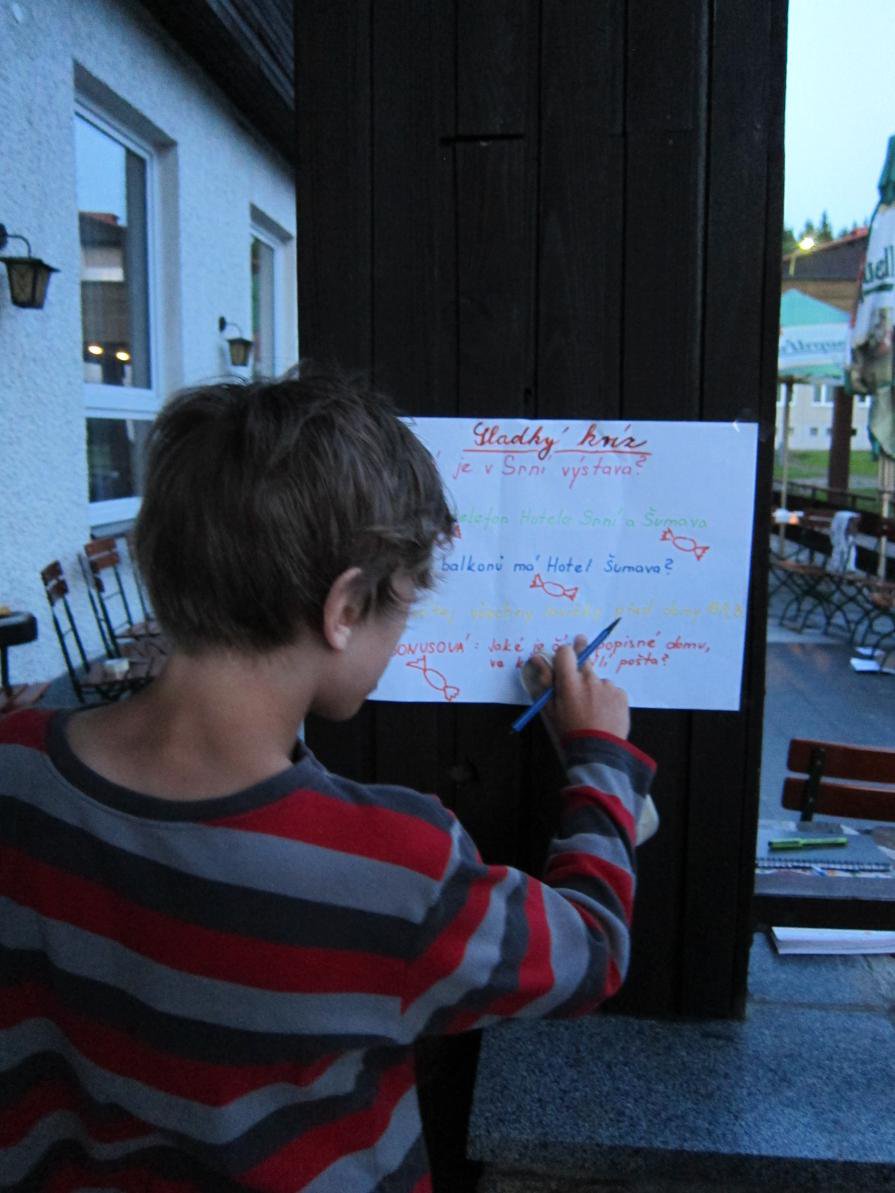 Sladký kvíz
je v Srní výstava?
telefon Hotelu Srní a Šumava
balkonů má Hotel Šumava?
všechny před
BONUSOVÁ: Jaké je popisné domu,
ve pošta?